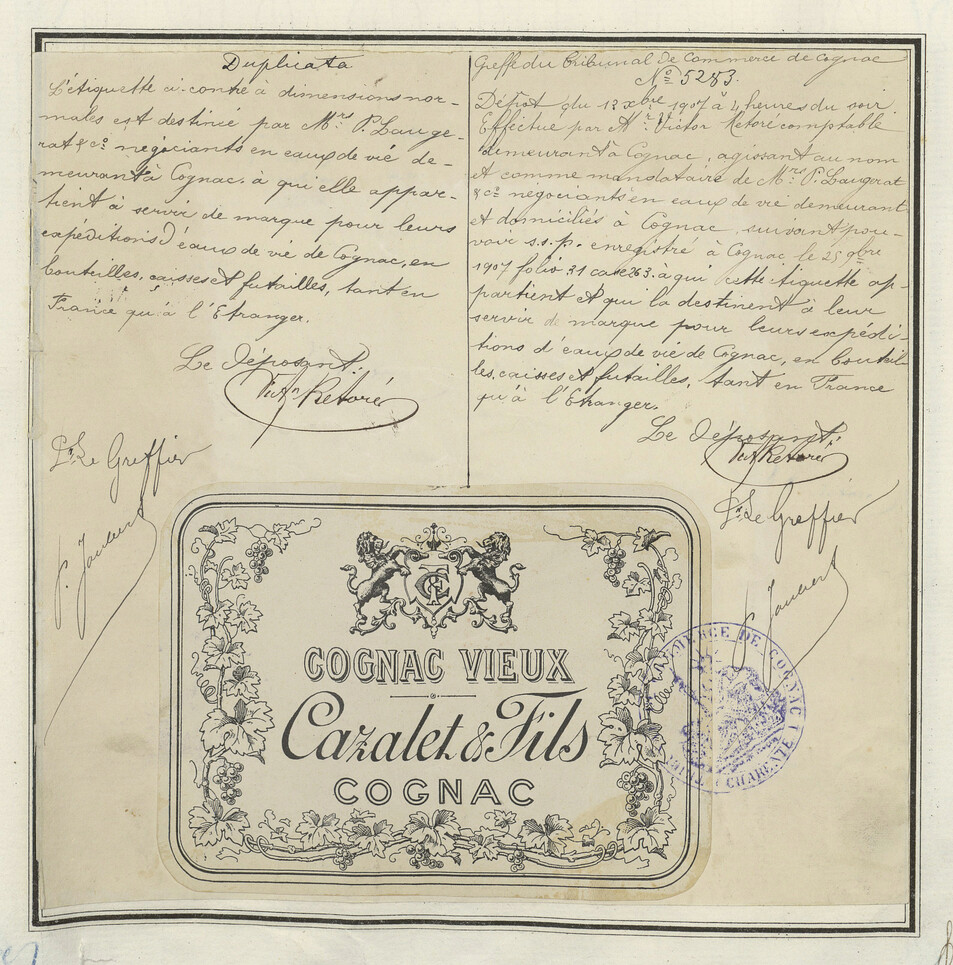 Duplicata
L'étiquette ci-contre à dimensions nor-
males est destinée par Mrs P. Lauge-
rat & Co négociants en eaux de vie de-
meurant à Cognac, à qui elle appar-
tient à servir de marque pour leurs
expéditions d'eaux de vie de Cognac, en
bouteilles, caisses et futailles, tant en
France qu'à l'Etranger.
Le déposant,
Vict. Retoré
Pr. Le Greffier
Greffe du Tribunal de Commerce de Cognac
No 5283.
Dépôt du 13 Xbre 1907 à 4 heures du soir
Effectué par Mr Victor Retoré comptable
demeurant à Cognac, agissant au nom
et comme mandataire de Mrs P. Laugerat
& Co négociants en eaux de vie demeurant
et domiciliés à Cognac, suivant pou-
voir s.s.p. enregistré à Cognac le 25 9bre
1907 folio 31 case 263. à qui cette étiquette ap-
partient et qui la destinent à leur
servir de marque pour leurs expédi-
tions d'eaux de vie de Cognac, en bouteil-
les, caisses et futailles, tant en France
qu'à l'Etranger.
Le déposant,
Vict Retoré
Pr. Le Greffier
COGNAC VIEUX
Cazalet & Fils
COGNAC
COMMERCE DE COGNAC
CHARENTE